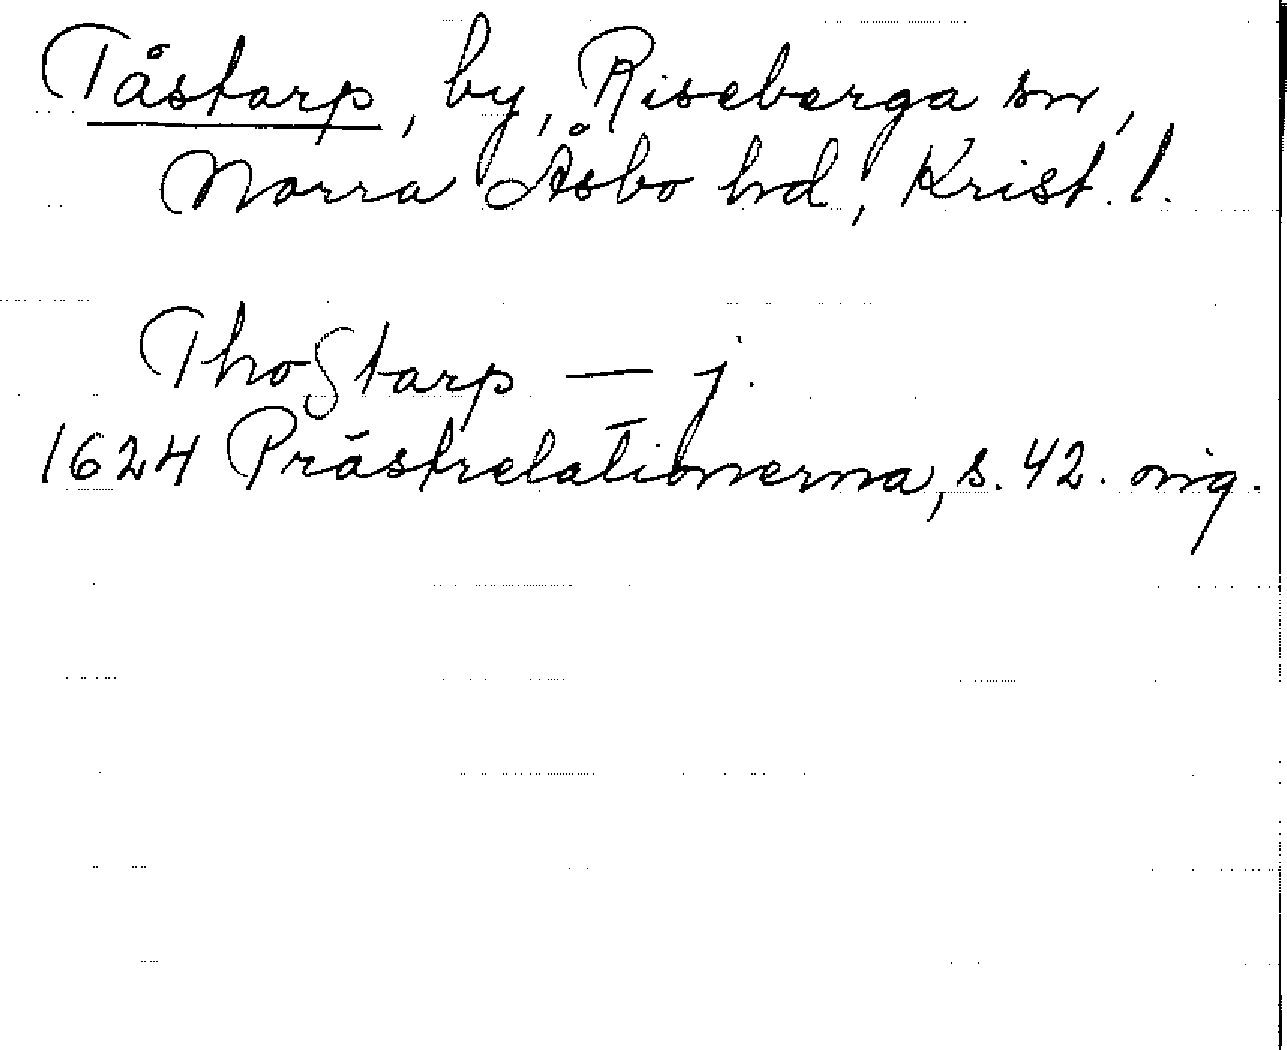 Tåstarp, by, Riseberga sn,
Norra Åsbo hd, Krist. l.
Thoſtarp — j.
1624 Prästrelationerna, s. 42. orig.